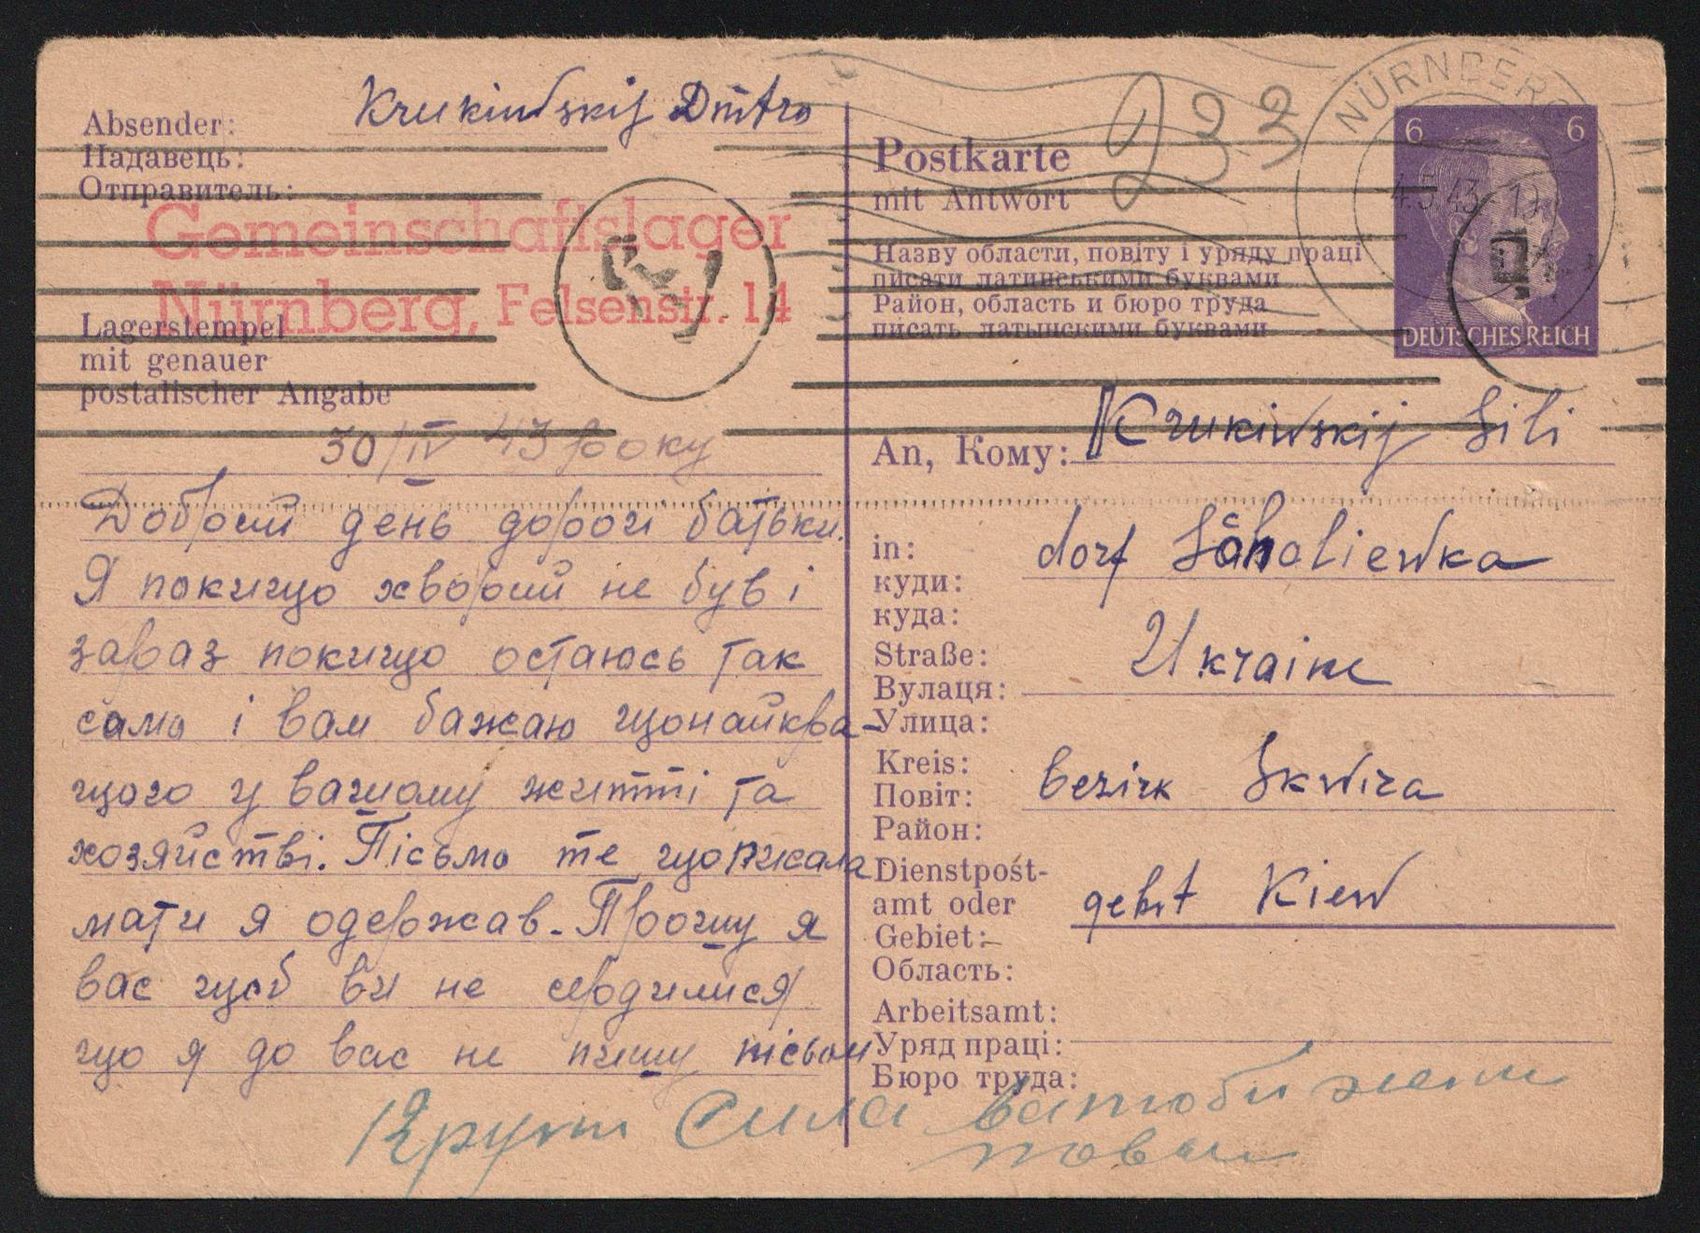 Absender:
Надавець:
Отправитель:
Krukiwskij Dmitro
Gemeinschaftslager
Nürnberg, Felsenstr. 14
Lagerstempel
mit genauer
postalischer Angabe
30/IV 43 року
Доброй день дорогі батьки.
Я покищо хворой не був і
зараз покищо остаюсь так
само і вам бажаю щонайкра-
щого у вашому житті та
хозяйстві. Пісьмо те що писала
мати я одержав. Прошу я
вас щоб ви не сердилися
що я до вас не пишу пісьом
Postkarte
mit Antwort
233
NÜRNBERG
4.5.43. 19
6 6
DEUTSCHES REICH
Назву области, повіту і уряду праці
писати латинськими буквами
Район, область и бюро труда
писать латынскими буквами
An, Кому: Krukiwskij Sili
in: dorf
куди:
куда:
Straße: Ukraine
Вулаця:
Улица:
Kreis: bezirk Skwira
Повіт:
Район:
Dienstpost-
amt oder gebit Kiew
Gebiet:
Область:
Arbeitsamt:
Уряд праці:
Бюро труда:
Сила